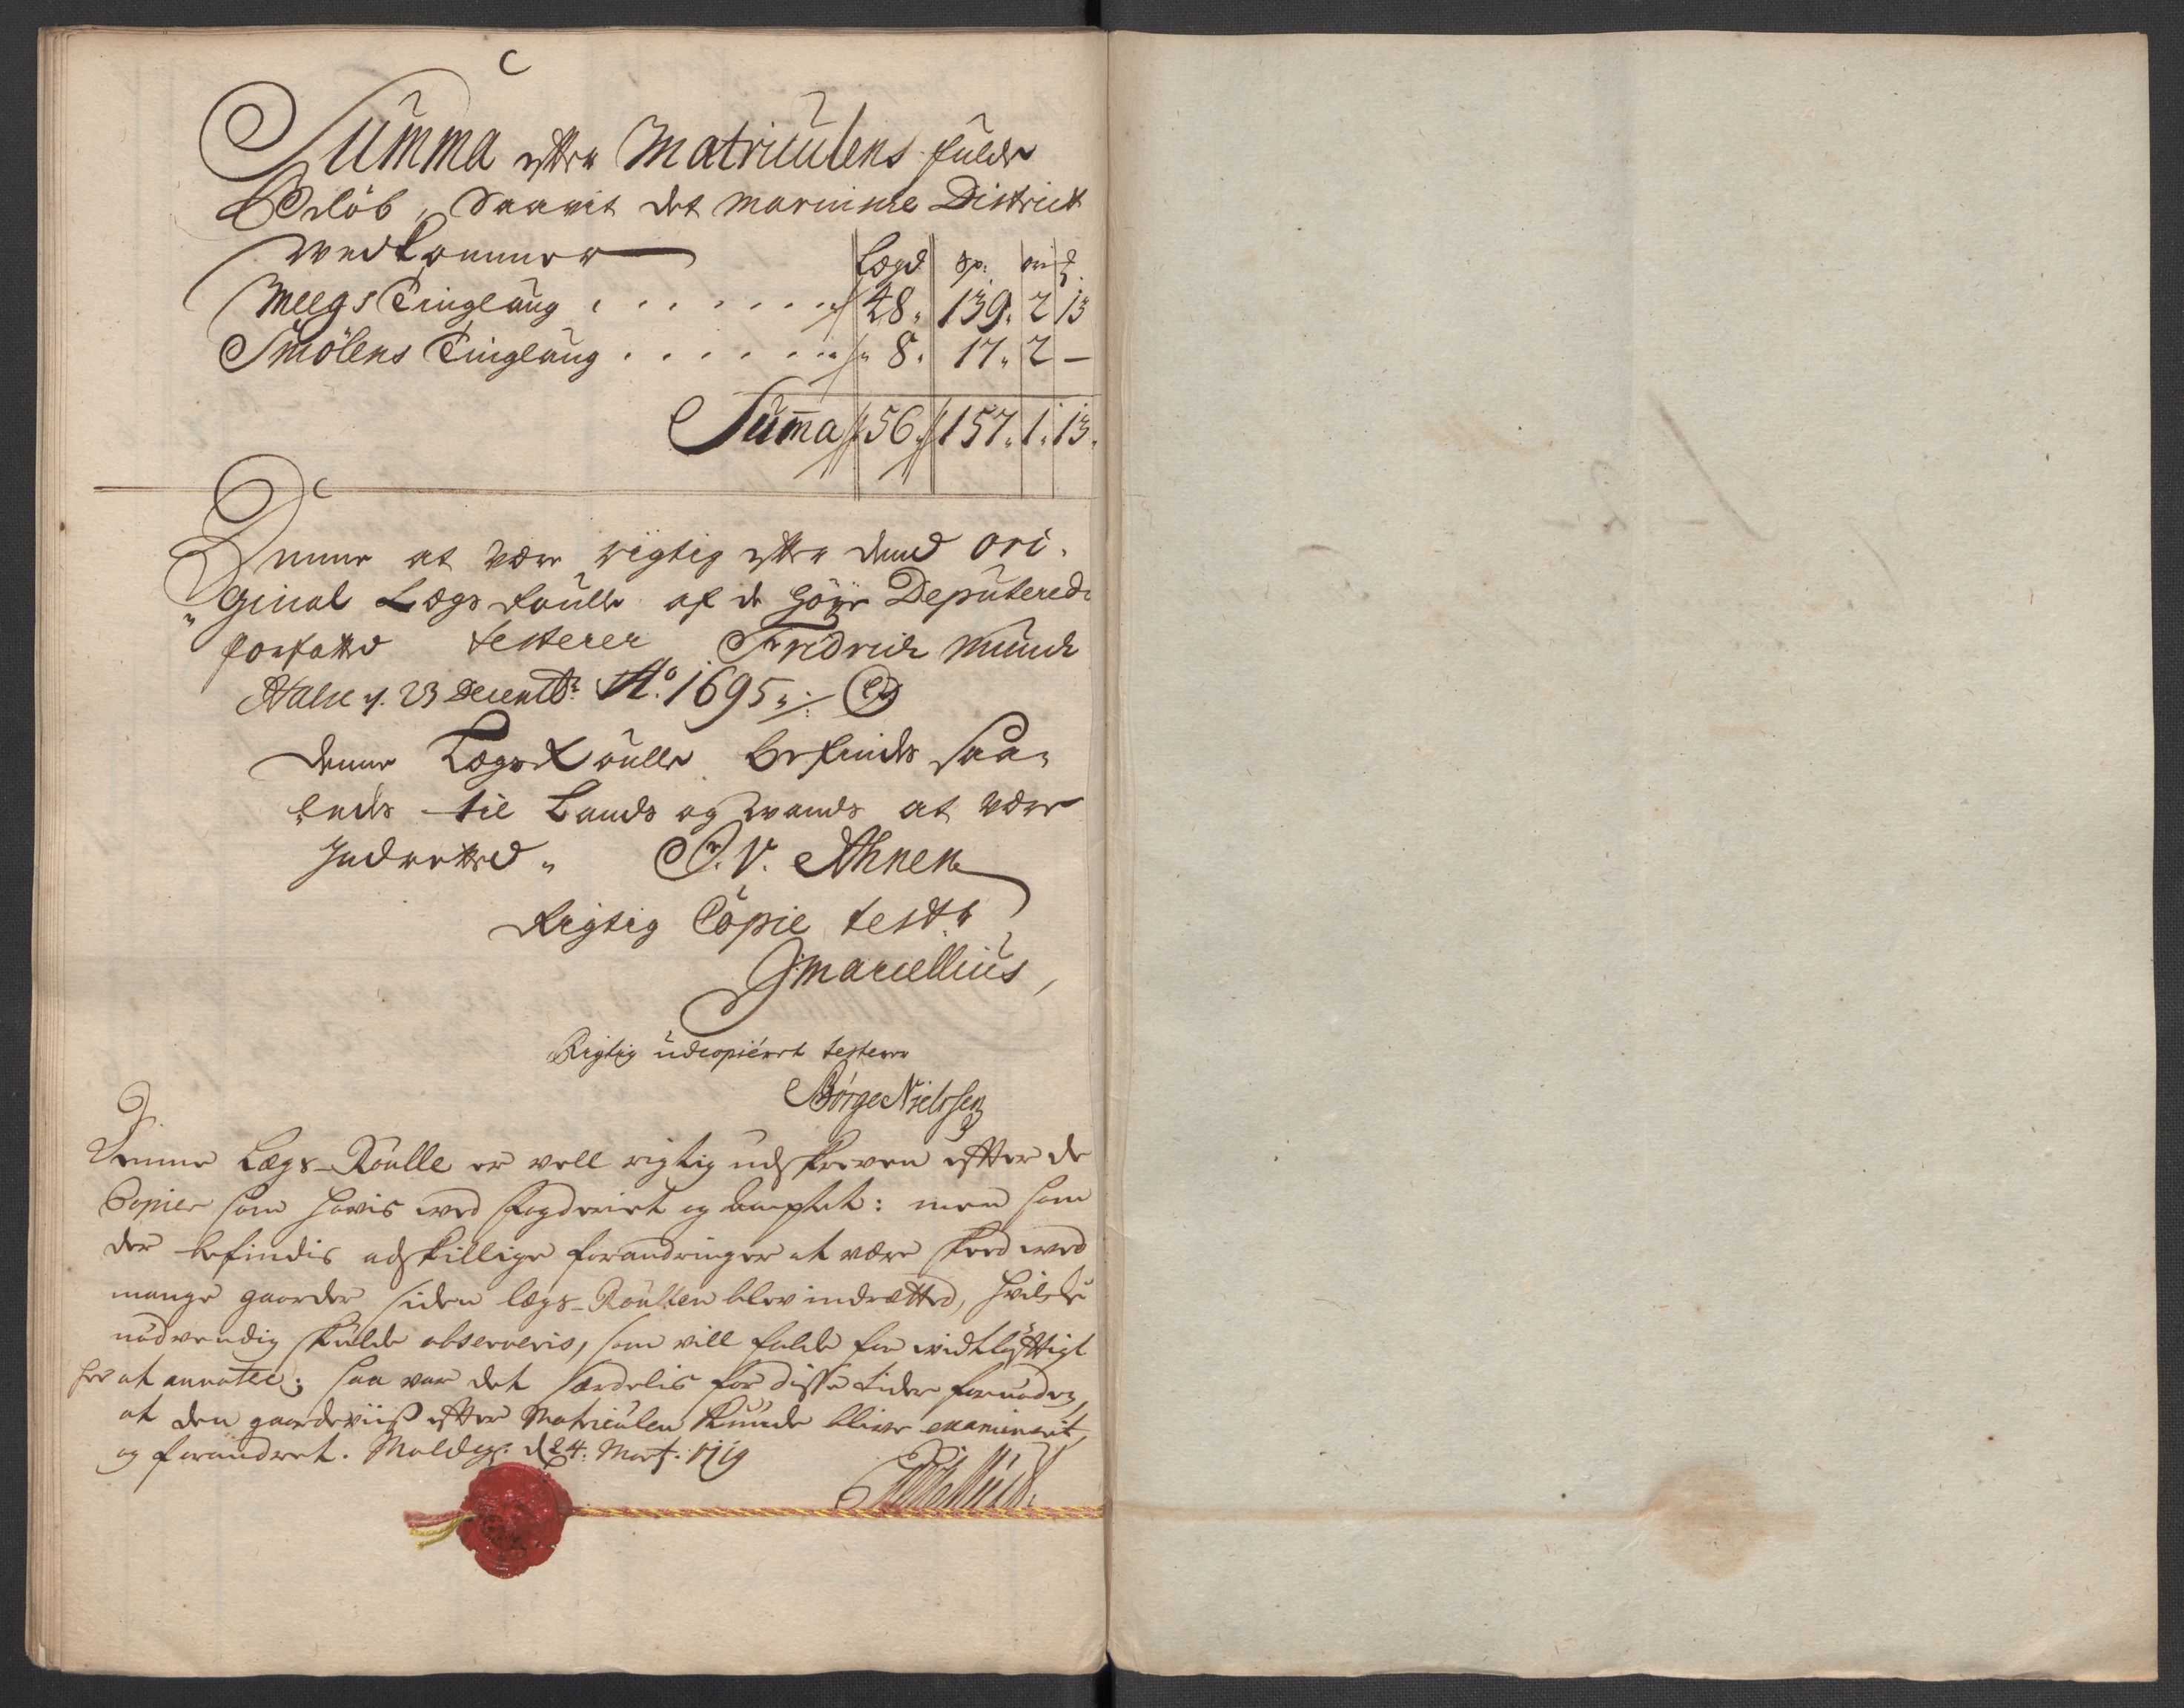 Summa efter Matriculens fulde
Beløb, Saavit det marinine District
wedkommer
Lægd sp: ort ß
Meegs Tinglaug 48. 139. 2 13
Smölens Tinglaug 8. 17. 2 –
Summa 56. 157. 1. 13.
Denne at være rigtig efter dend ori-
ginal Lægs Roulle af de Höye Deputerede
forfatted testerer Fridrich Münch
23 Decembr: Ao. 1695
denne Lægs Roulle befindes saa-
ledes til Lands og wands at være
Indretted. P. V. Ahnen
Rigtig Copie test:
J: Marcellius
Rigtig udcopiéert testerer
Börge Nielssen
Denne Lægs-Roulle er vell rigtig udskreven efter de
Copier som hawis wed fogderiet og Amptet: men som
der befindis adskillige forandringer at være skeed wed
mange gaarder siden lægs-Roullen blev indrætted, hvilche
nödvendig skulde observeris, som vill falde for widtløftigt
her at annotere; saa var det særdelis for disse tider fornöden,
at den gaardeviiß efter Matriculen kunde blive examinerit,
og forandret. Molde d 24. Mart. 1719